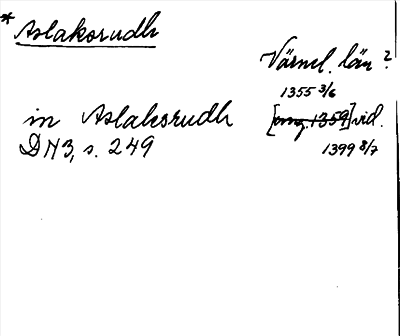 * Aslaksrudh
Värml. län?
1355 3/6
in Aslaksrudh [omg. 1359] vid.
DN 3, s. 249
1399 8/7